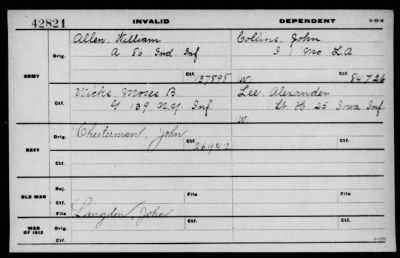 42821 INVALID DEPENDENT 3-91-6
Allen, William Collins, John
Orig. A 86 Ind Inf I 1 Mo L A
ARMY Ctf. 137898 W. Ctf. 84726
Wicks, Moses B. Lee Alexander
Ctf. G 189 N.Y. Inf 1 Lt H 25 Iowa Inf
W
Chesterman, John
Orig. Ctf. 26942 Ctf.
NAVY
Ctf.
Rej. File File
OLD WAR
Ctf. File
Langdon, John
WAR OF 1812 Orig. Ctf. Ctf.